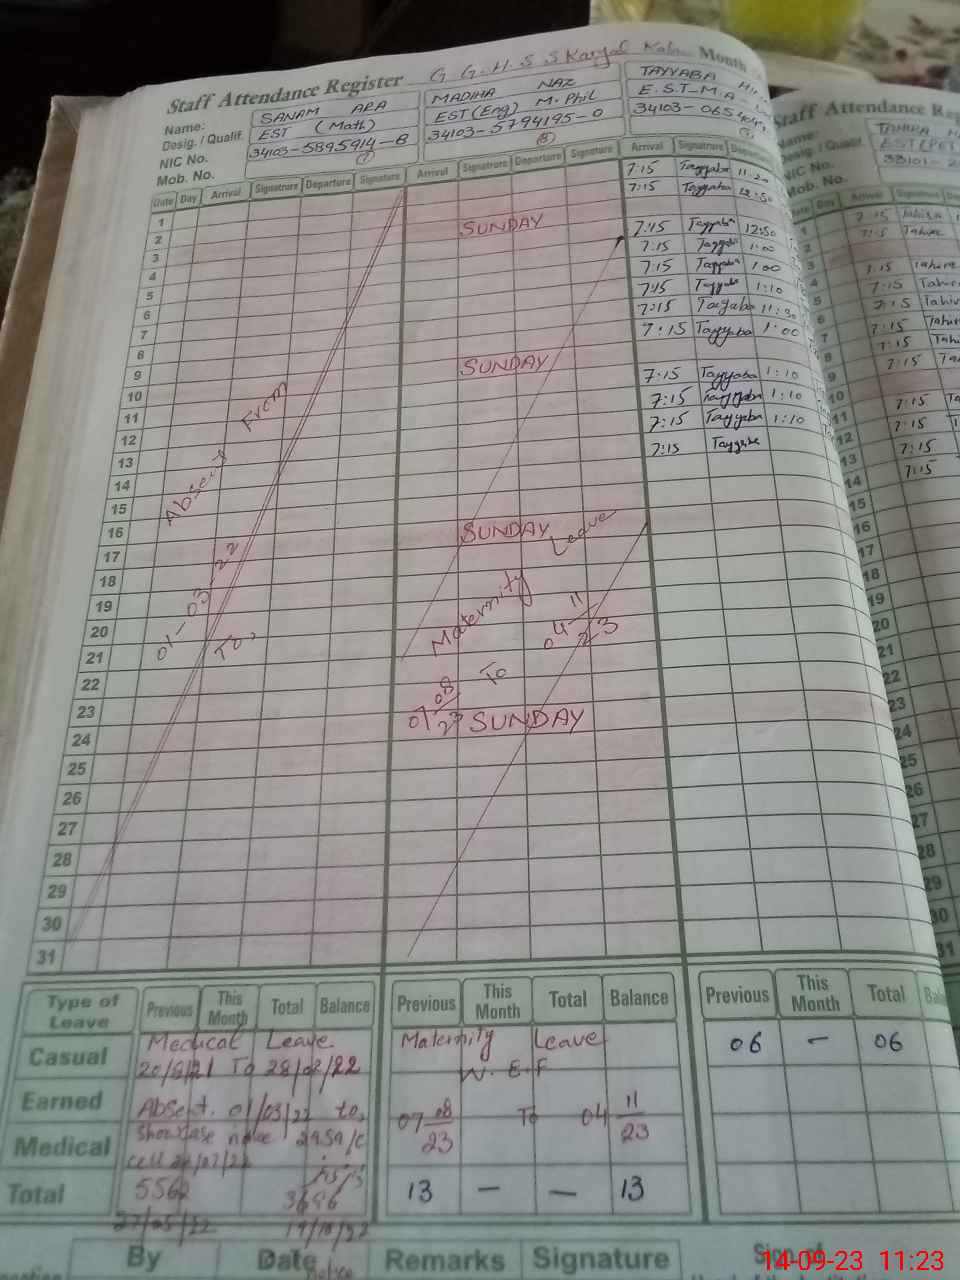 Staff Attendance Register G.G.H.S.S Karyal Month
Name: SANAM ARA MADIHA NAZ TAYYABA
Desig. / Qualif. EST (Math) EST (Eng) M.Phil E.S.T-M.A
NIC No. 34103-5895914-8 34103-5794195-0 34103-0654
Mob. No.
Date Day Arrival Signatrure Departure Signature Arrival Signatrure Departure Signature Arrival Signatrure Departure
1 7:15 Tayyaba 11:20
2 7:15 Tayyaba 12:50
3 SUNDAY
4 7:15 Tayyaba 12:50
5 7:15 Tayyaba 1:00
6 7:15 Tayyaba 1:00
7 7:15 Tayyaba 1:10
8 7:15 Tayyaba 11:30
9 7:15 Tayyaba 1:00
10 SUNDAY
11 7:15 Tayyaba 1:10
12 7:15 Tayyaba 1:10
13 7:15 Tayyaba 1:10
14 7:15 Tayyaba
15
16
17 SUNDAY
18
19
20
21
22
23
24 SUNDAY
25
26
27
28
29
30
31
Absent From
01-03-22
To,
Maternity Leave
07 08/23 To 04 11/23
Type of Leave Previous This Month Total Balance Previous This Month Total Balance Previous This Month Total
Casual Medical Leave Maternity Leave 06 - 06
20/8/21 To 28/02/22 W.E.F
Earned Absent. 01/03/22 to, 07 08/23 To 04 11/23
Medical
Total 5562 3686 13 - - 13
27/05/22 19/10/22
By Date Remarks Signature Sign of
Staff Attendance
Name: TAHIRA
Desig. / Qualif. EST(PET)
NIC No.
Mob. No.
Date Day Arrival
1 7:15 Tahira
2 7:15 Tahira
3
4 7:15 Tahira
5 7:15 Tahira
6 7:15 Tahira
7 7:15 Tahira
8 7:15
9 7:15
10
11 7:15
12 7:15
13 7:15
14 7:15
15
16
17
18
19
20
21
22
23
24
25
26
27
28
29
30
31
14-09-23 11:23